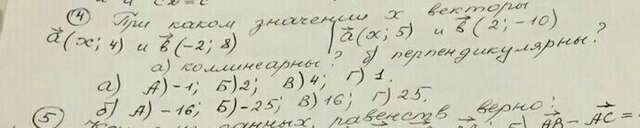 ④ При каком значении x векторы
a⃗(x; 4) и b⃗(-2; 8) | a⃗(x; 5) и b⃗(2; -10)
а) коллинеарны? б) перпендикулярны?
а) А) -1; Б) 2; В) 4; Г) 1.
б) А) -16; Б) -25; В) 16; Г) 25.
⑤ данных равенств верно:
AB⃗ - AC⃗ =